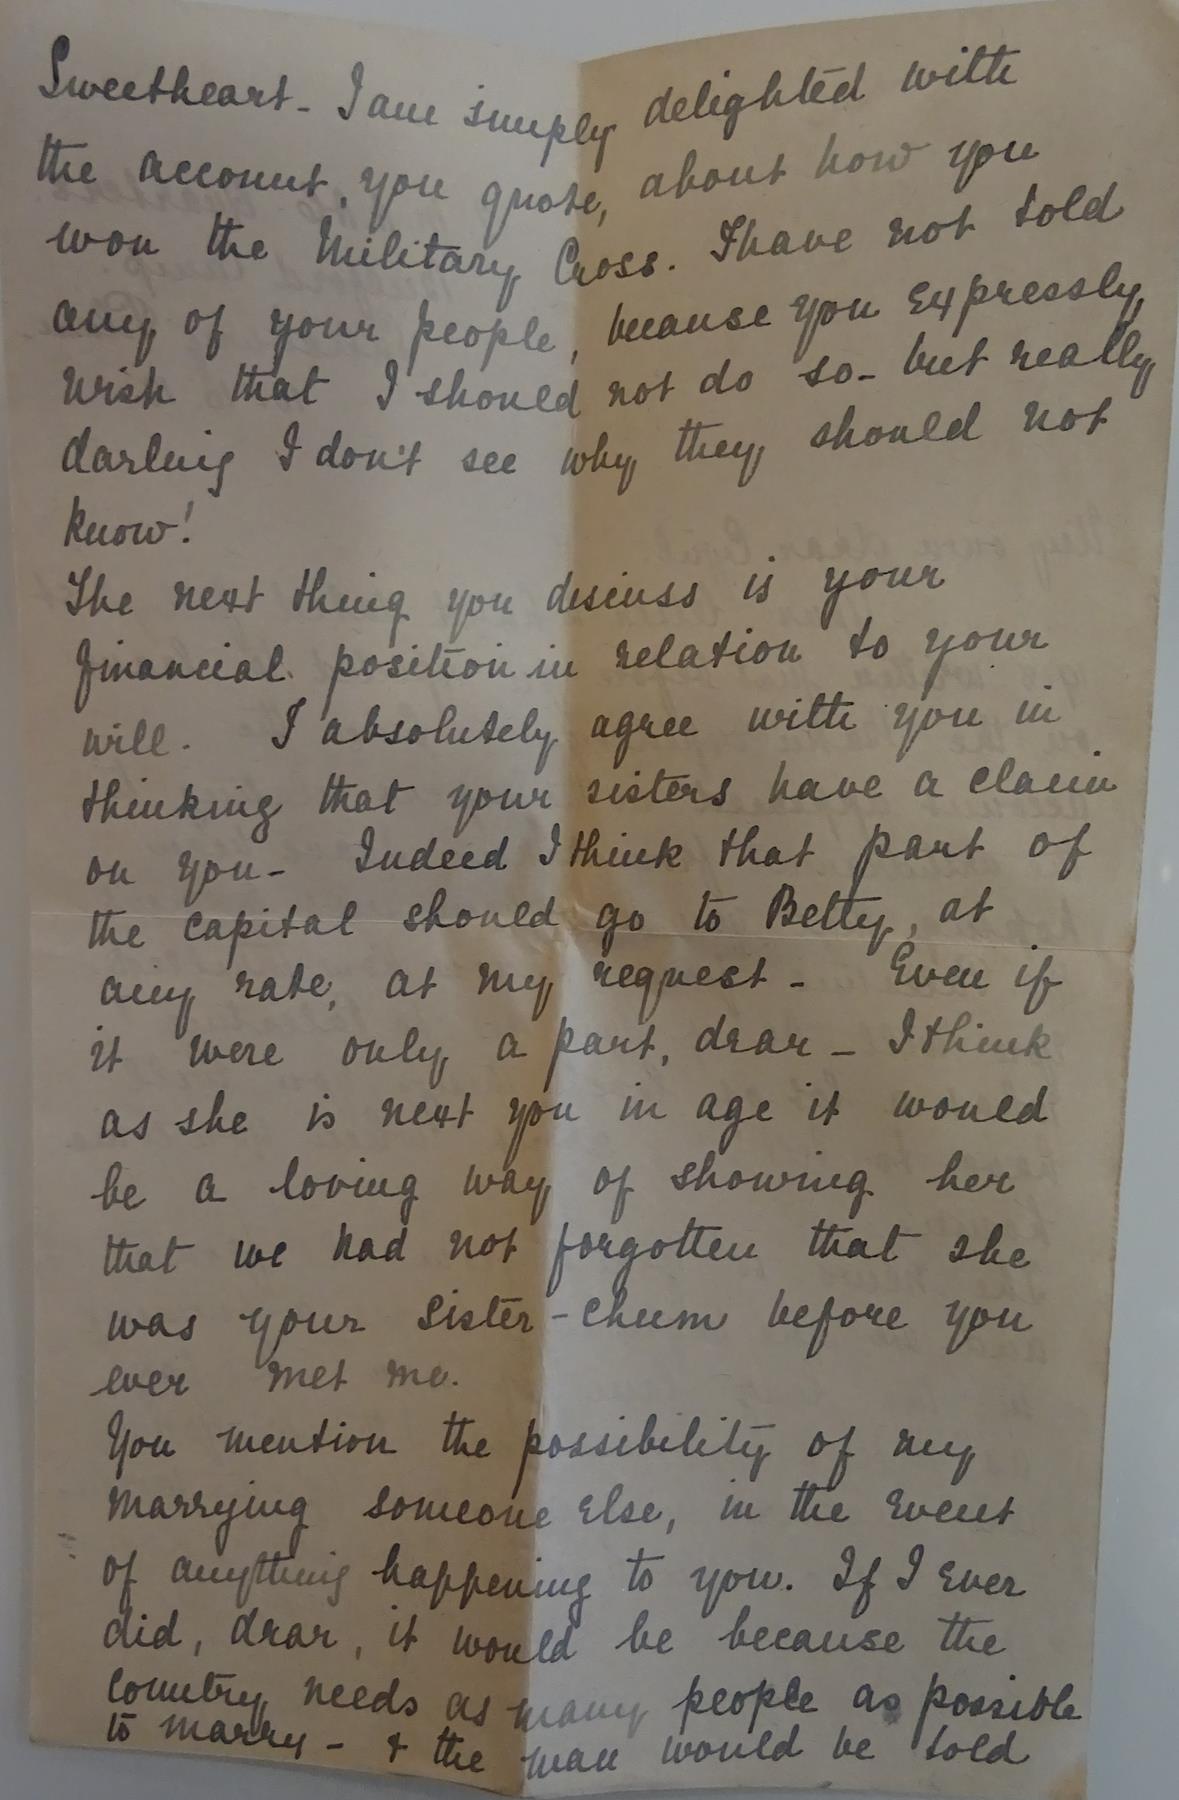 Sweetheart - I am simply delighted with
the account, you quote, about how you
won the Military Cross. I have not told
any of your people, because you expressly
wish that I should not do so - but really
darling I don't see why they should not
know!
The next thing you discuss is your
financial position in relation to your
will. I absolutely agree with you in
thinking that your sisters have a claim
on you - Indeed I think that part of
the capital should go to Betty, at
any rate, at my request - Even if
it were only a part, dear - I think
as she is next you in age it would
be a loving way of showing her
that we had not forgotten that she
was your sister-chum before you
ever met me.
You mention the possibility of my
marrying someone else, in the event
of anything happening to you. If I ever
did, dear, it would be because the
country needs as many people as possible
to marry - & the man would be told